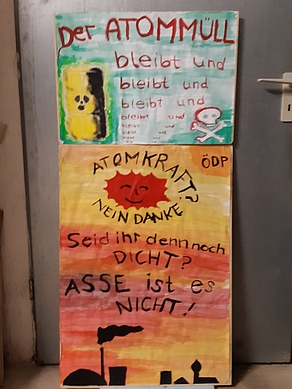 Der ATOMMÜLL
bleibt und
bleibt und
bleibt und
bleibt und
bleibt und
ATOMKRAFT?
NEIN DANKE
ÖDP
Seid ihr denn noch
DICHT?
ASSE ist es
NICHT!